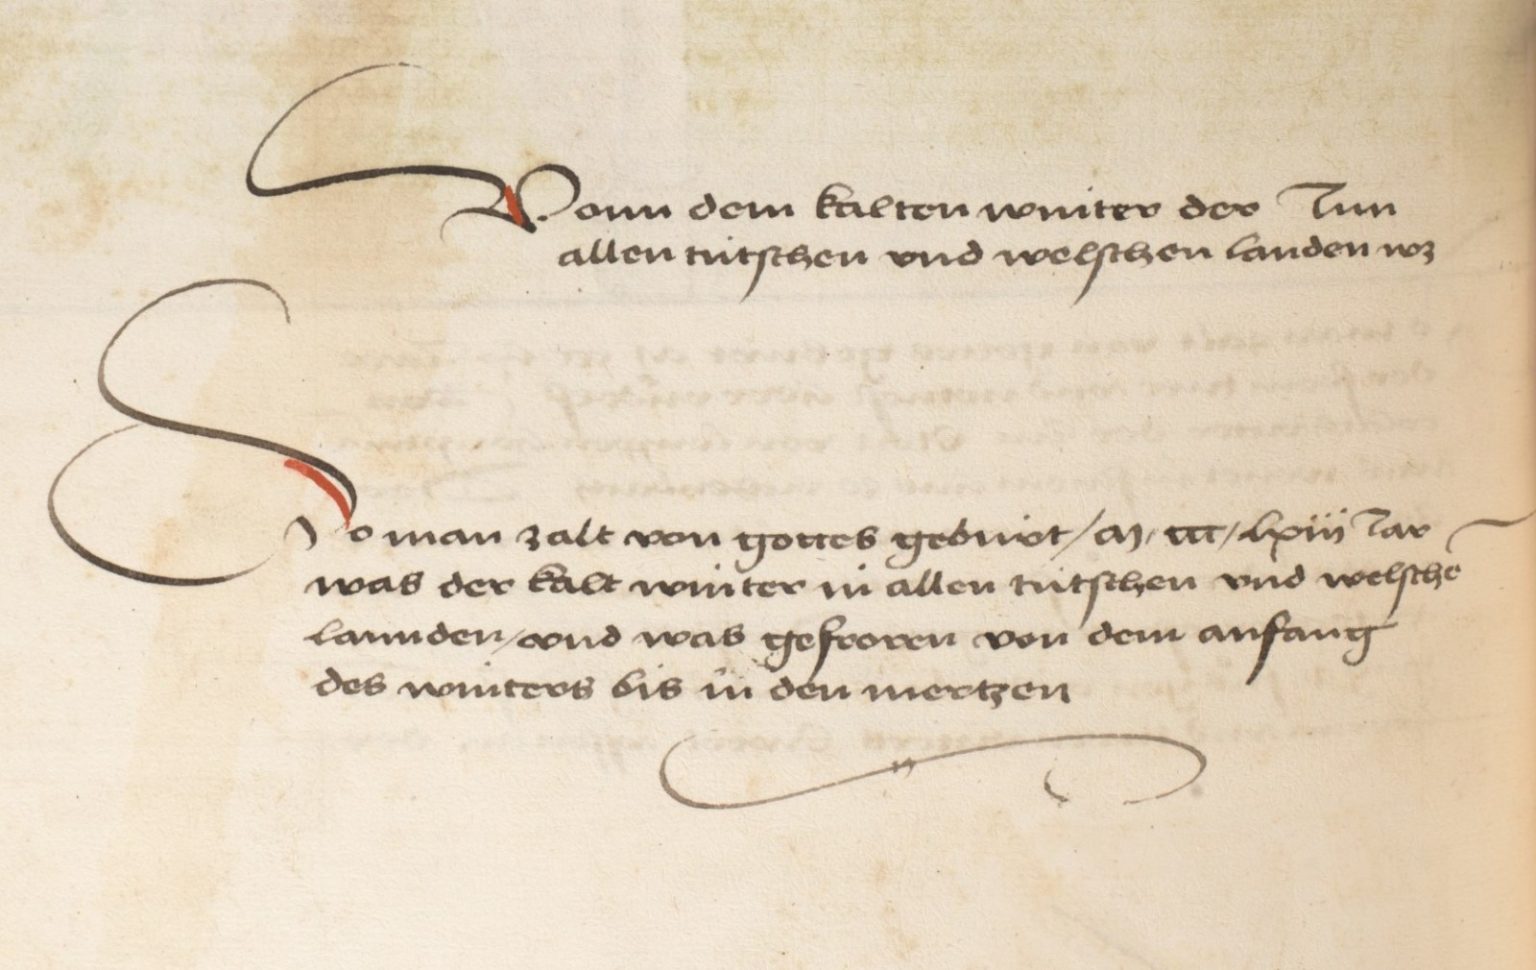 Vonn dem kalten winter der Inn
allen tütschen vnd welschen landen wz
So man zalt von gottes geburt / M, ccc, / lxiii Iar
was der kalt winter in allen tütschen vnd welsche
lannden / vnd was gefroren von dem anfang
des winters bis in den mertzen